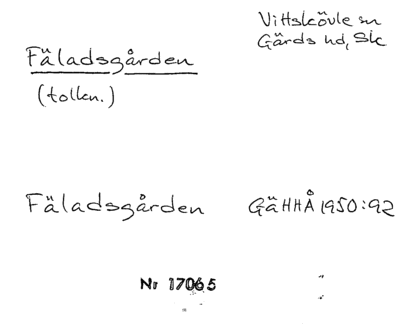 Vittskövle sn
Gärds hd, Sk
Fäladsgården
(tolkn.)
Fäladsgården GäHHÅ 1950:92
Nr 17065